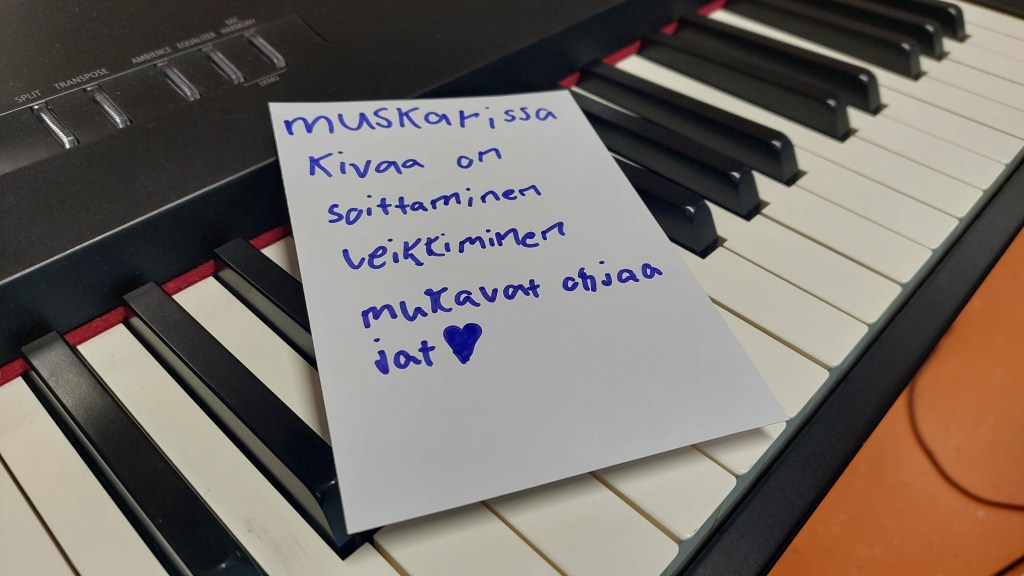 SPLIT
TRANSPOSE
AMBIENCE
EQUALIZER
muskarissa
Kivaa on
soittaminen
leikkiminen
mukavat ohjaa
jat